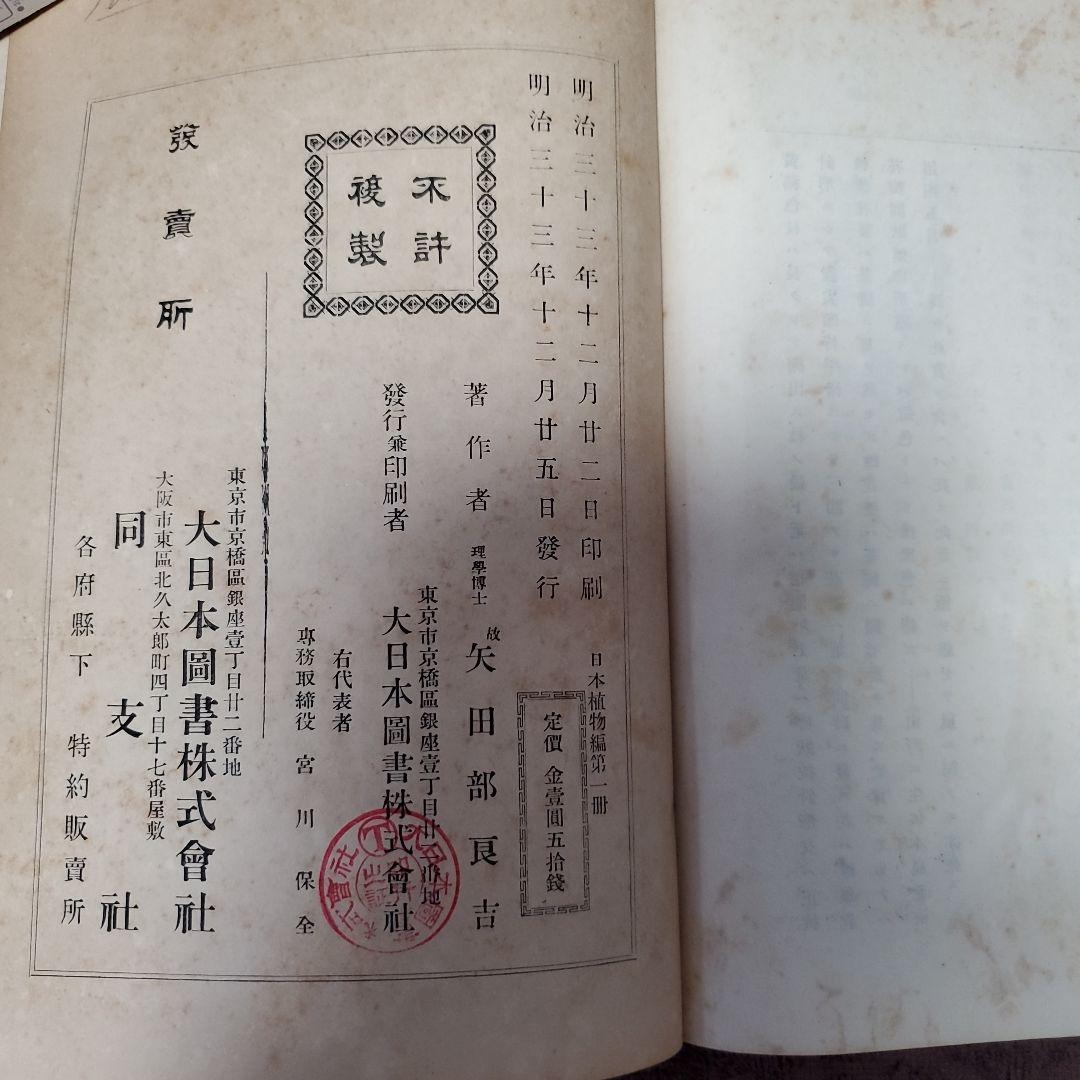 明治三十三年十二月廿二日印刷
明治三十三年十二月廿五日發行
日本植物編第一冊
定價 金壹圓五拾錢
不許
複製
著作者 理學博士 故 矢田部良吉
東京市京橋區銀座壹丁目廿二番地
發行兼印刷者 大日本圖書株式會社
右代表者
專務取締役 宮川保全
發賣所
東京市京橋區銀座壹丁目廿二番地
大日本圖書株式會社
大阪市東區北久太郎町四丁目十七番屋敷
同支社
各府縣下 特約販賣所